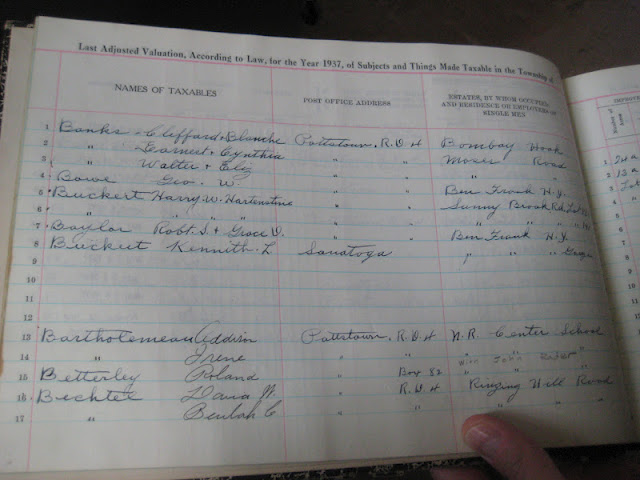 Last Adjusted Valuation, According to Law, for the Year 1937, of Subjects and Things Made Taxable in the Township of
NAMES OF TAXABLES POST OFFICE ADDRESS ESTATES, BY WHOM OCCUPIED, AND RESIDENCE OR EMPLOYERS OF SINGLE MEN
1 Banks Clifford & Blanche Pottstown, R.D.4 Bombay Hook
2 " Earnest & Cynthia " " Moser Road
3 " Walter & Eliz " " "
4 Bowe Geo. W. " " Ben Frank H.y.
5 Buckert Harry W. Hartenstine " " Sunny Brook Rd.
6 " " " " " " " "
7 Baylor Robt. S. & Grace V. " " Ben Frank H.y.
8 Buckert Kenneth L Sanatoga " " "
9
10
11
12
13 Bartholomeau Addison Pottstown, R.D.4 N.R. Center School
14 " Irene " " With John
15 Betterley Roland " Box 82
16 Bechtel W. " R.D.4 Ringing Hill Road
17 " Beulah C " " " " "